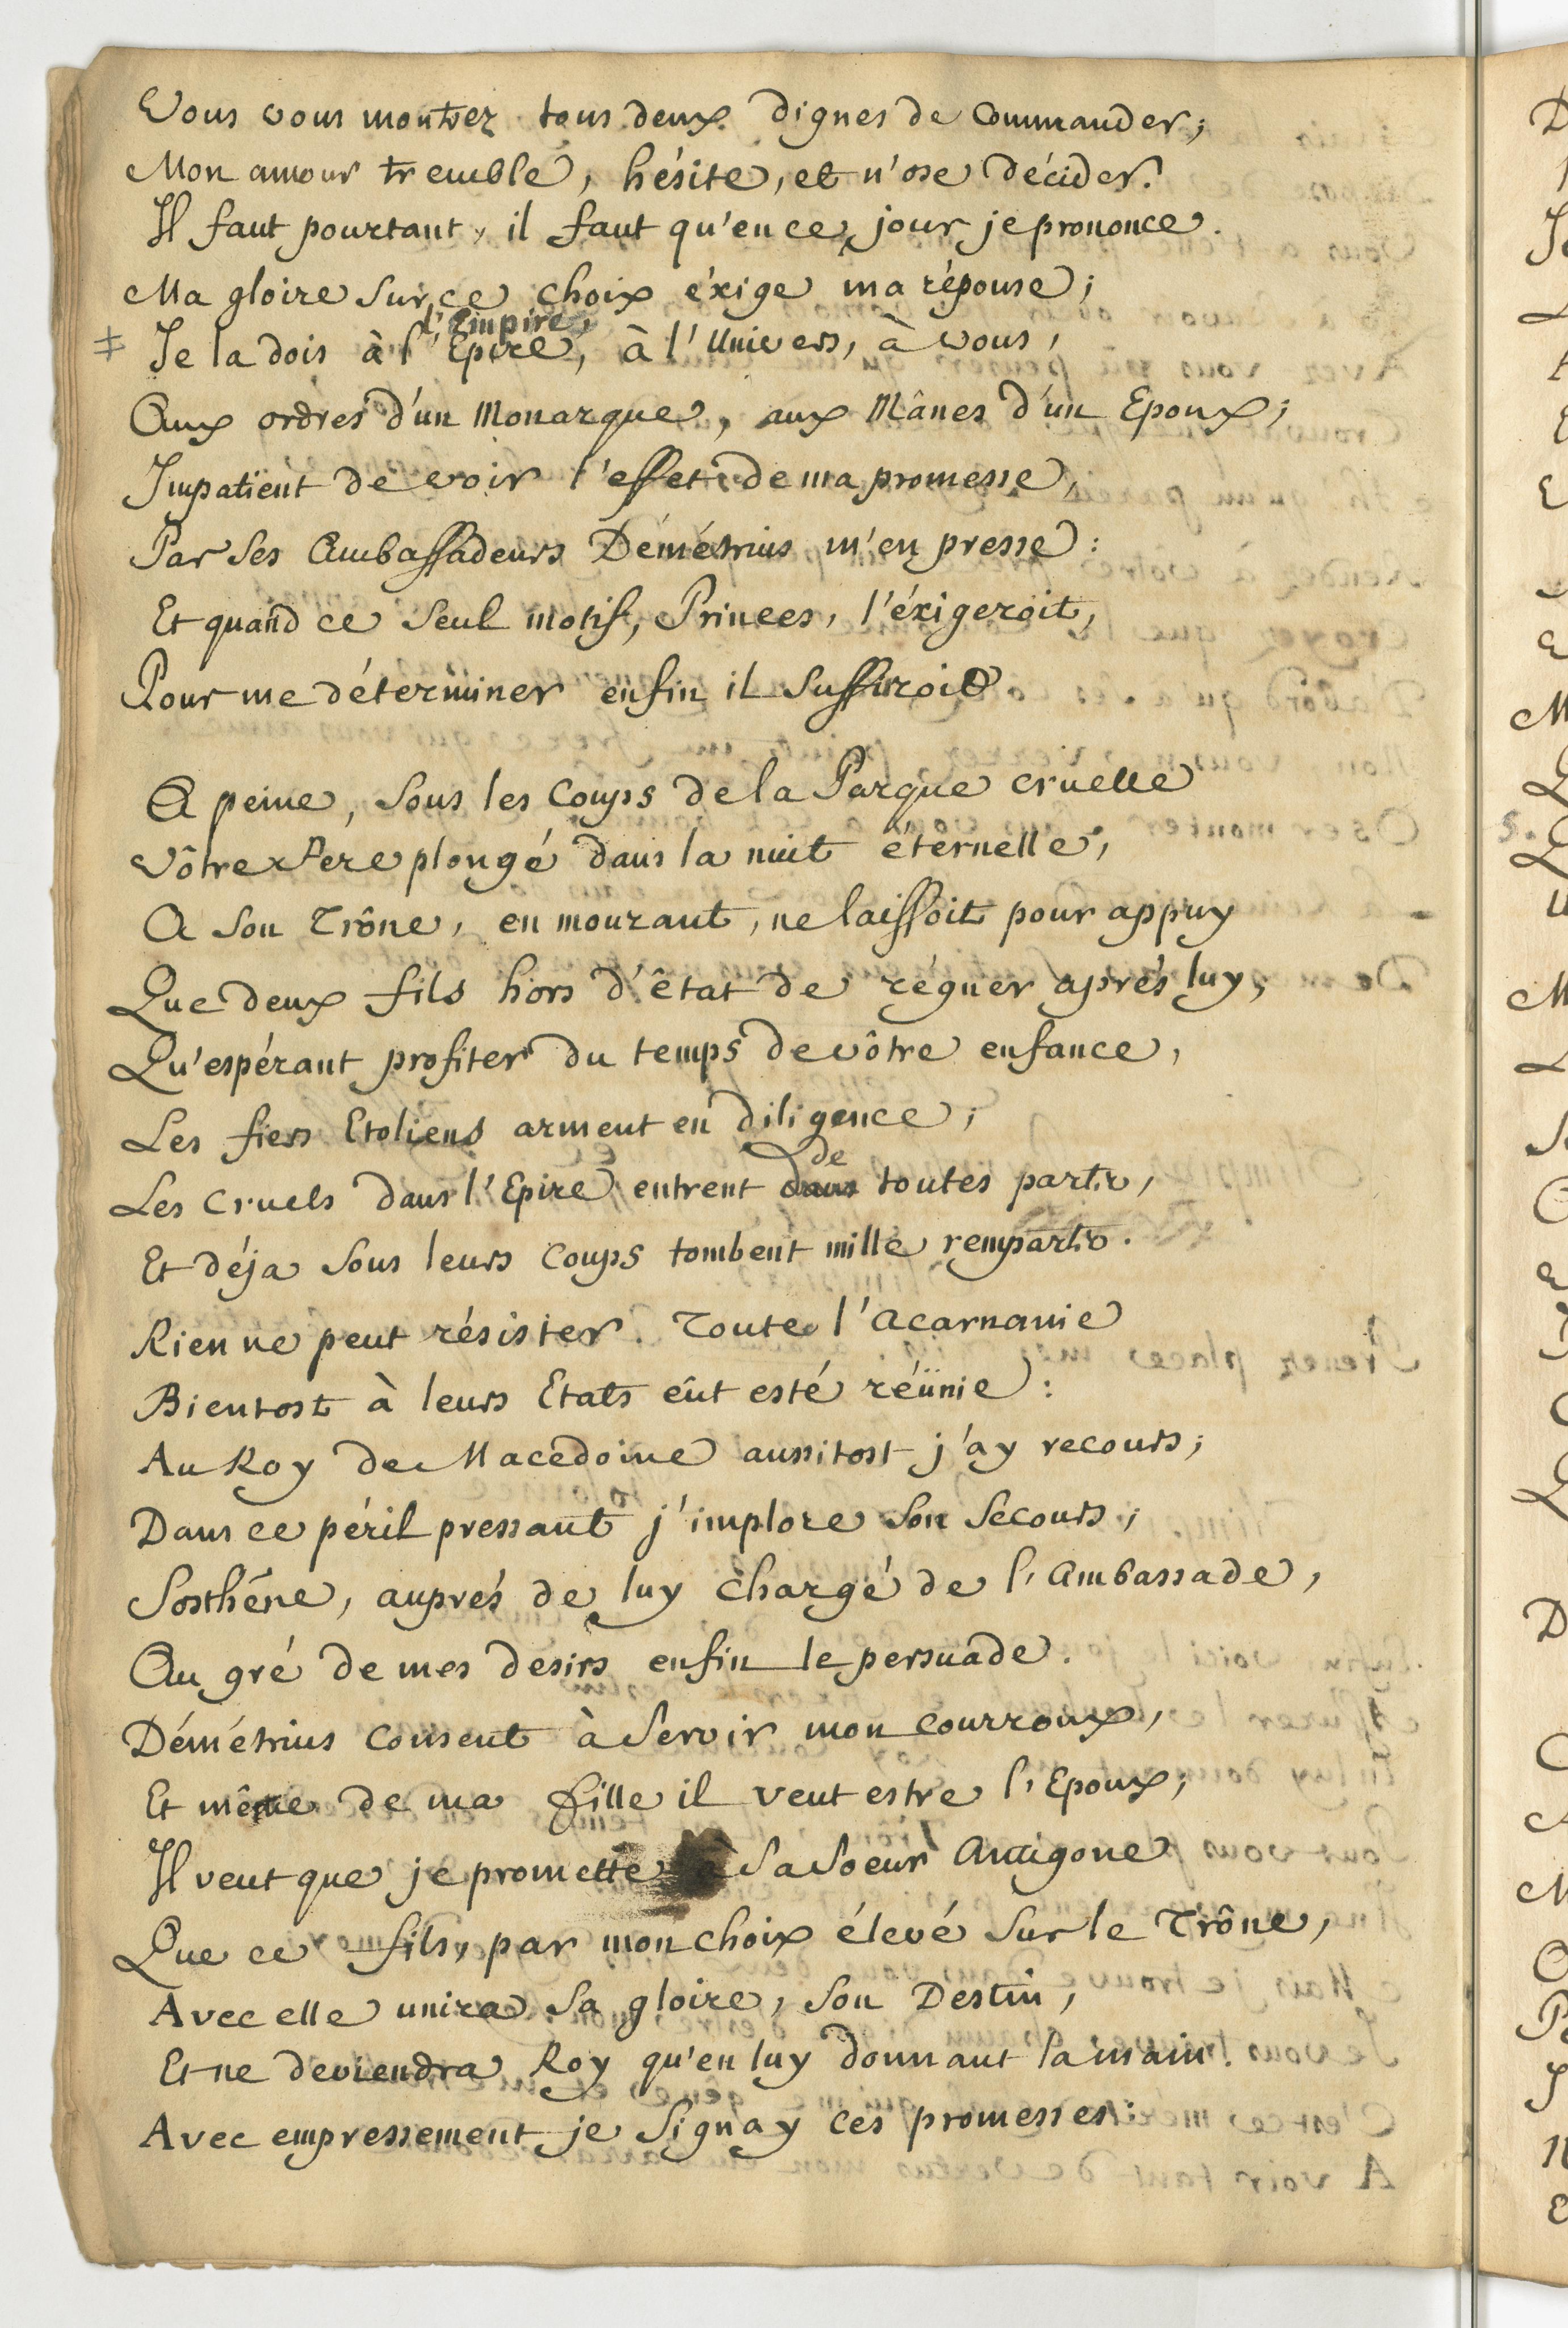 Vous vous montrez tous deux dignes de Commander;
Mon amour tremble, hésite, et n'ose décider.
Il faut pourtant, il faut qu'en ce jour je prononce.
Ma gloire sur ce choix éxige ma réponse;
l'Empire,
Je la dois à l'Epire, à l'Univers, à vous,
Aux ordres d'un Monarque, aux Mânes d'un Epoux;
Impatient de voir l'effet de ma promesse,
Par ses Ambassadeurs Démétrius m'en presse:
Et quand ce seul motif, Princes, l'éxigeroit,
Pour me déterminer enfin il suffiroit
A peine, sous les Coups de la Parque cruelle
vôtre Pere plongé dans la nuit éternelle,
A son Trône, en mourant, ne laissoit pour appuy
Que deux fils hors d'état de régner aprés luy,
Qu'espérant profiter du temps de vôtre enfance,
Les fiers Etoliens arment en diligence;
de
Les Cruels dans l'Epire entrent dans toutes parts,
Et déja sous leurs Coups tombent mille remparts.
Rien ne peut résister. Toute l'Acarnanie
Bientost à leurs Etats eût esté réünie:
Au Roy de Macedoine aussitost j'ay recours;
Dans ce péril pressant j'implore son secours;
Sosthéne, auprés de luy chargé de l'Ambassade,
Au gré de mes desirs enfin le persuade.
Démétrius consent à servir mon courroux,
Et même de ma fille il veut estre l'Epoux;
Il veut que je promette à sa soeur Antigone
Que ce fils, par mon choix élevé sur le Trône,
Avec elle unira sa gloire, son Destin,
Et ne deviendra Roy qu'en luy donnant la main.
Avec empressement je signay ces promesses: